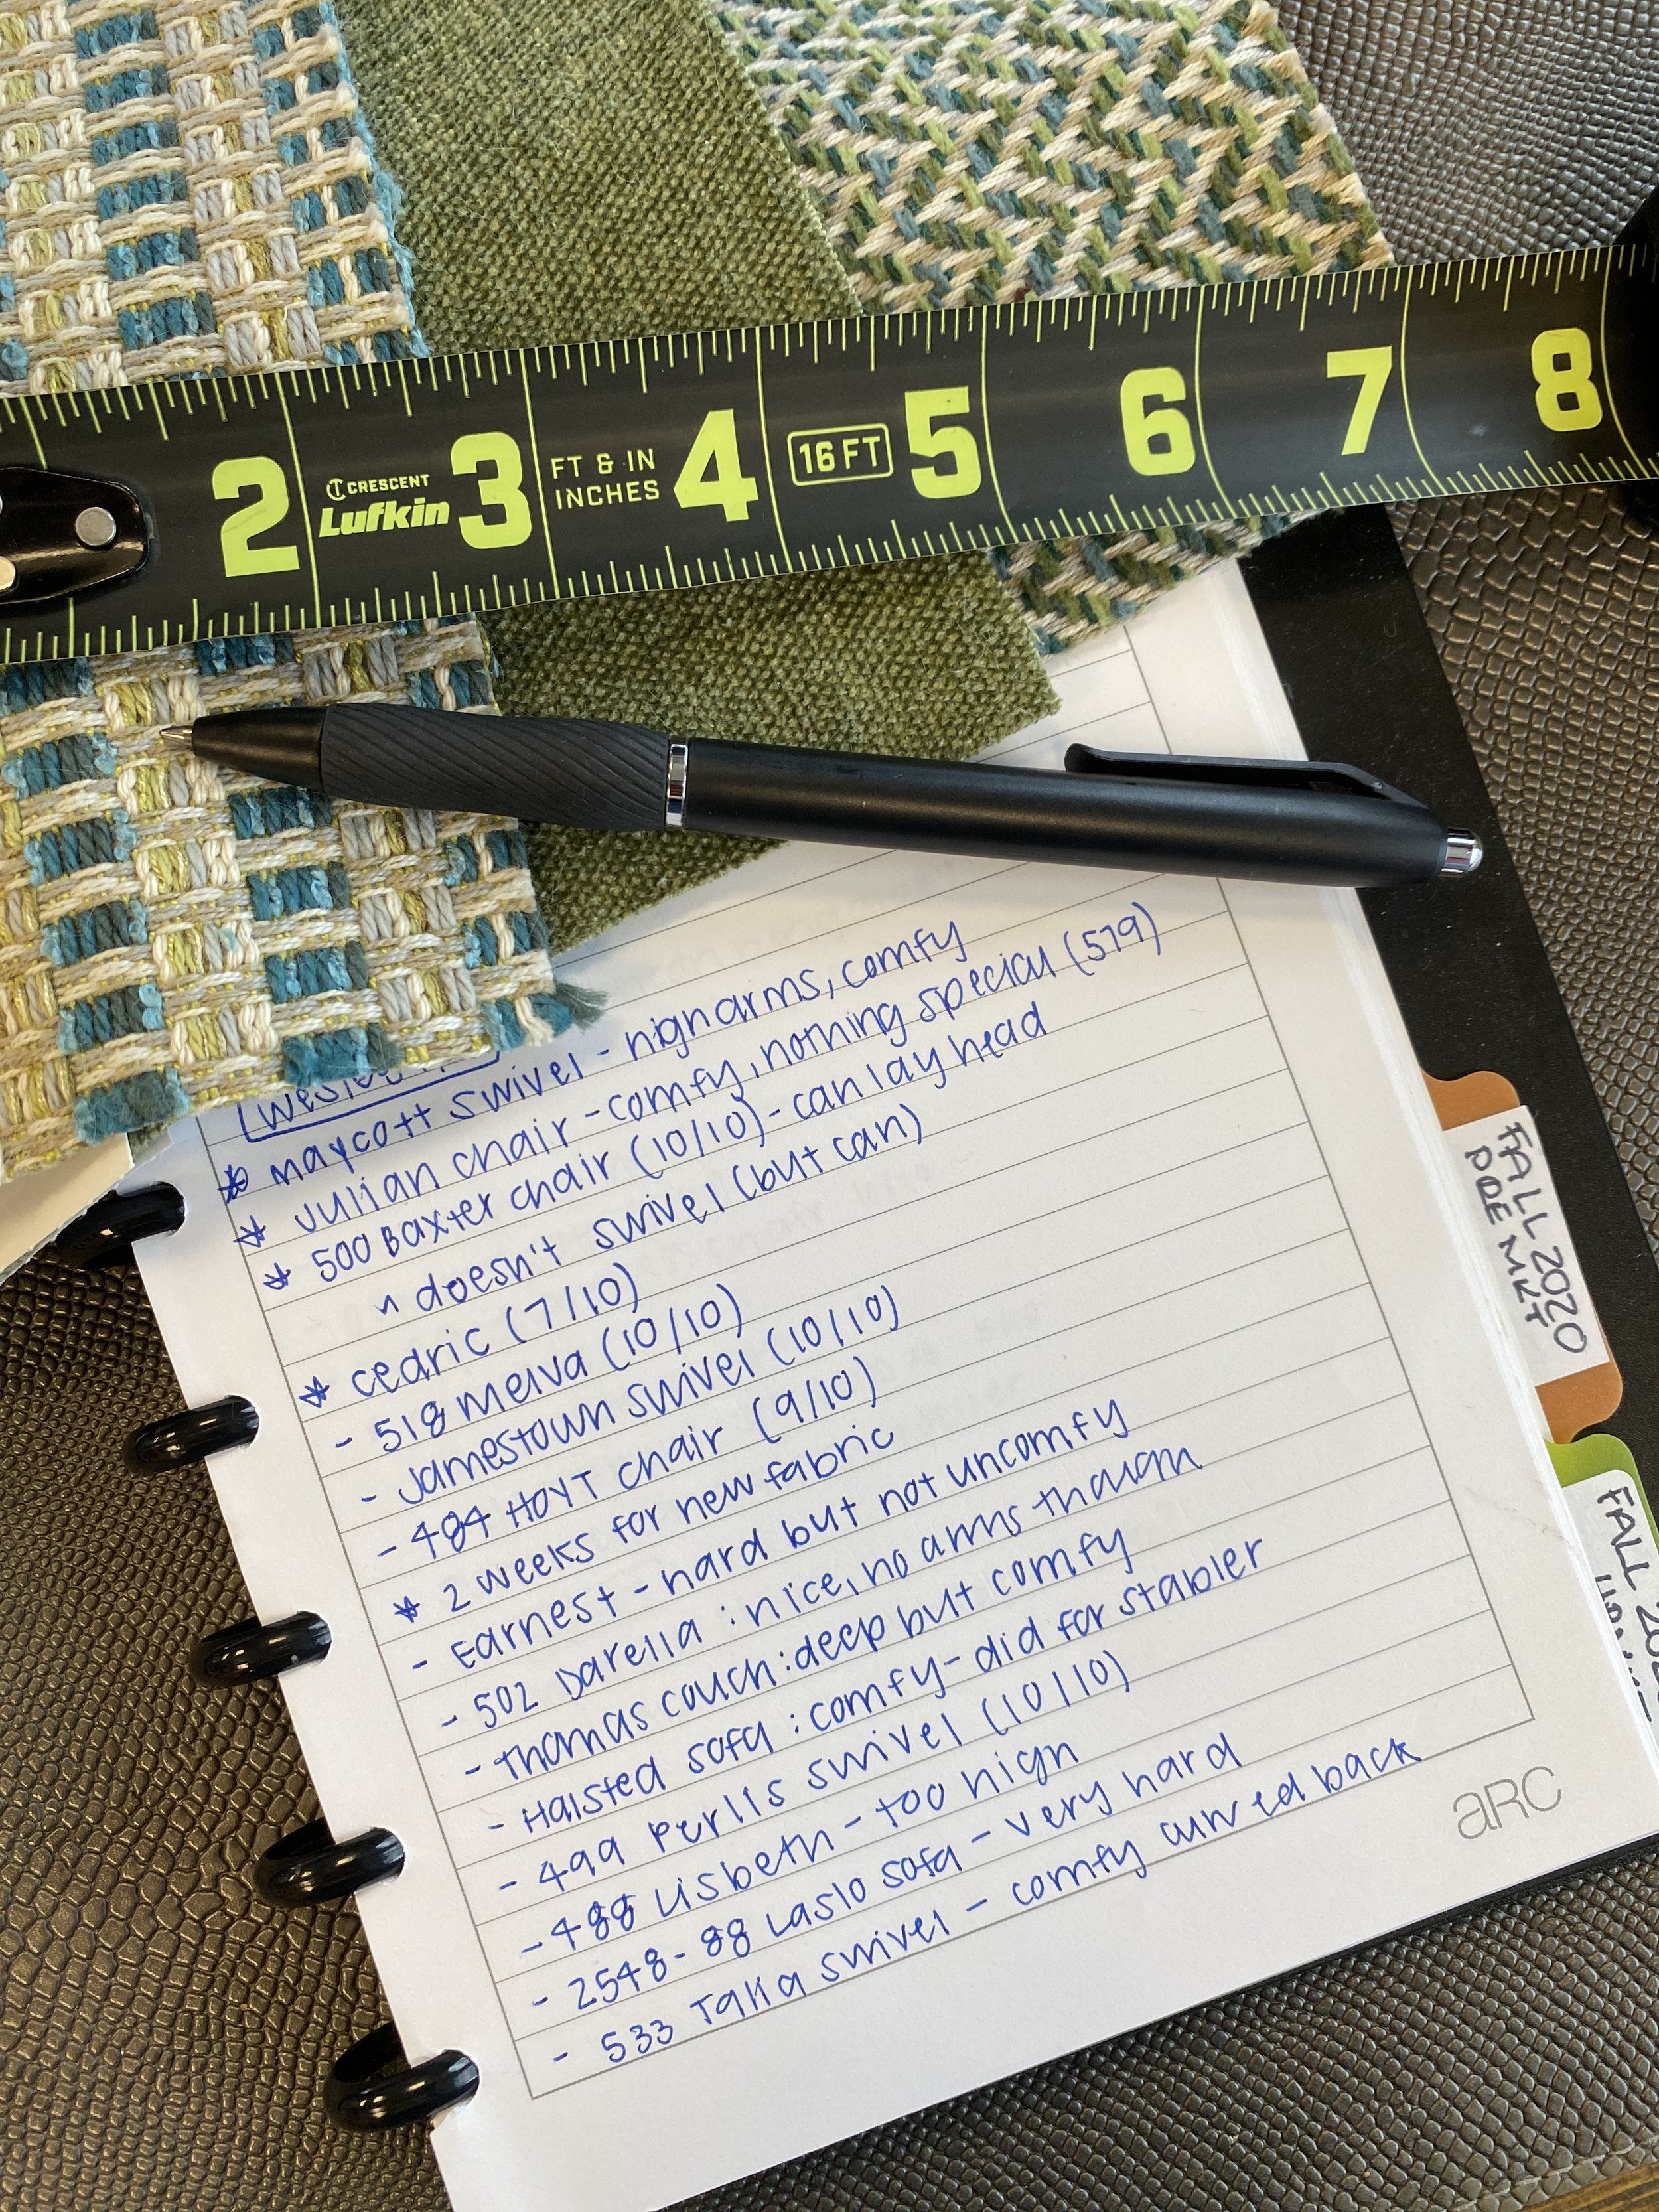 2 3 4 5 6 7 8
CRESCENT
Lufkin
FT & IN
INCHES
16 FT
* Maycott swivel - high arms, comfy
* Julian chair - comfy, nothing special (579)
* 500 Baxter chair (10/10) - can lay head
^ doesn't swivel (but can)
* cedric (7/10)
- 518 Melva (10/10)
- Jamestown swivel (10/10)
- 484 HOYT chair (9/10)
* 2 weeks for new fabric
- Earnest - hard but not uncomfy
- 502 Darella : nice, no arms
- Thomas couch : deep but comfy
- Halsted sofa : comfy - did for stabler
- 499 Perlis swivel (10/10)
- 488 Lisbeth - too high
- 2548-88 Laslo sofa - very hard
- 533 Talia swivel - comfy curved back
aRC
FALL 2020
PRE MKT
FALL